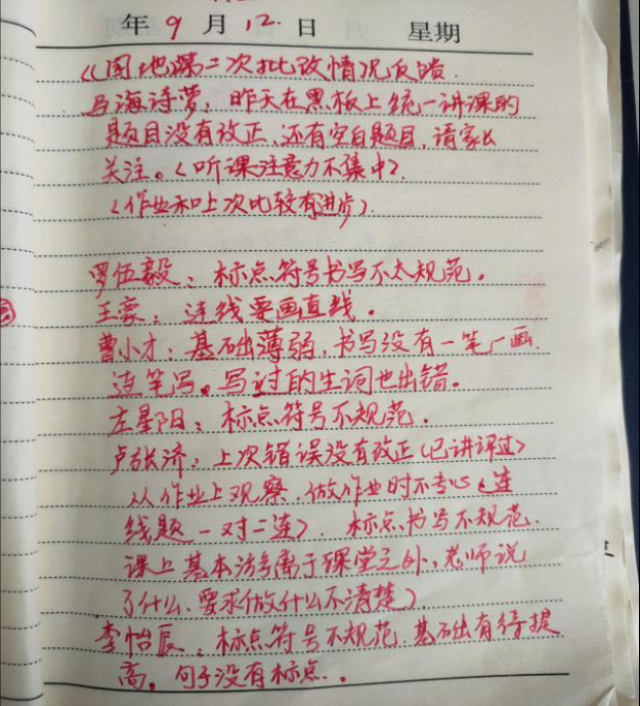 年 9 月 12 日 星期
《园地第二次批改情况反馈.
马海诗萝：昨天在黑板上统一讲课的
题目没有改正，还有空白题目，请家长
关注。(听课注意力不集中).
(作业和上次比较有进步).
罗伍毅：标点符号书写不太规范。
王豪：连线要画直线。
曹小才：基础薄弱，书写没有一笔一画.
连笔写。写过的生词也出错。
左星阳：标点符号不规范.
卢张济：上次错误没有改正(已讲评过)
从作业上观察.做作业时不专心(连
线题一对二连). 标点书写不规范.
课上基本游离于课堂之外，老师说
了什么、要求做什么不清楚).
李怡辰：标点符号不规范.基础有待提
高。句子没有标点.